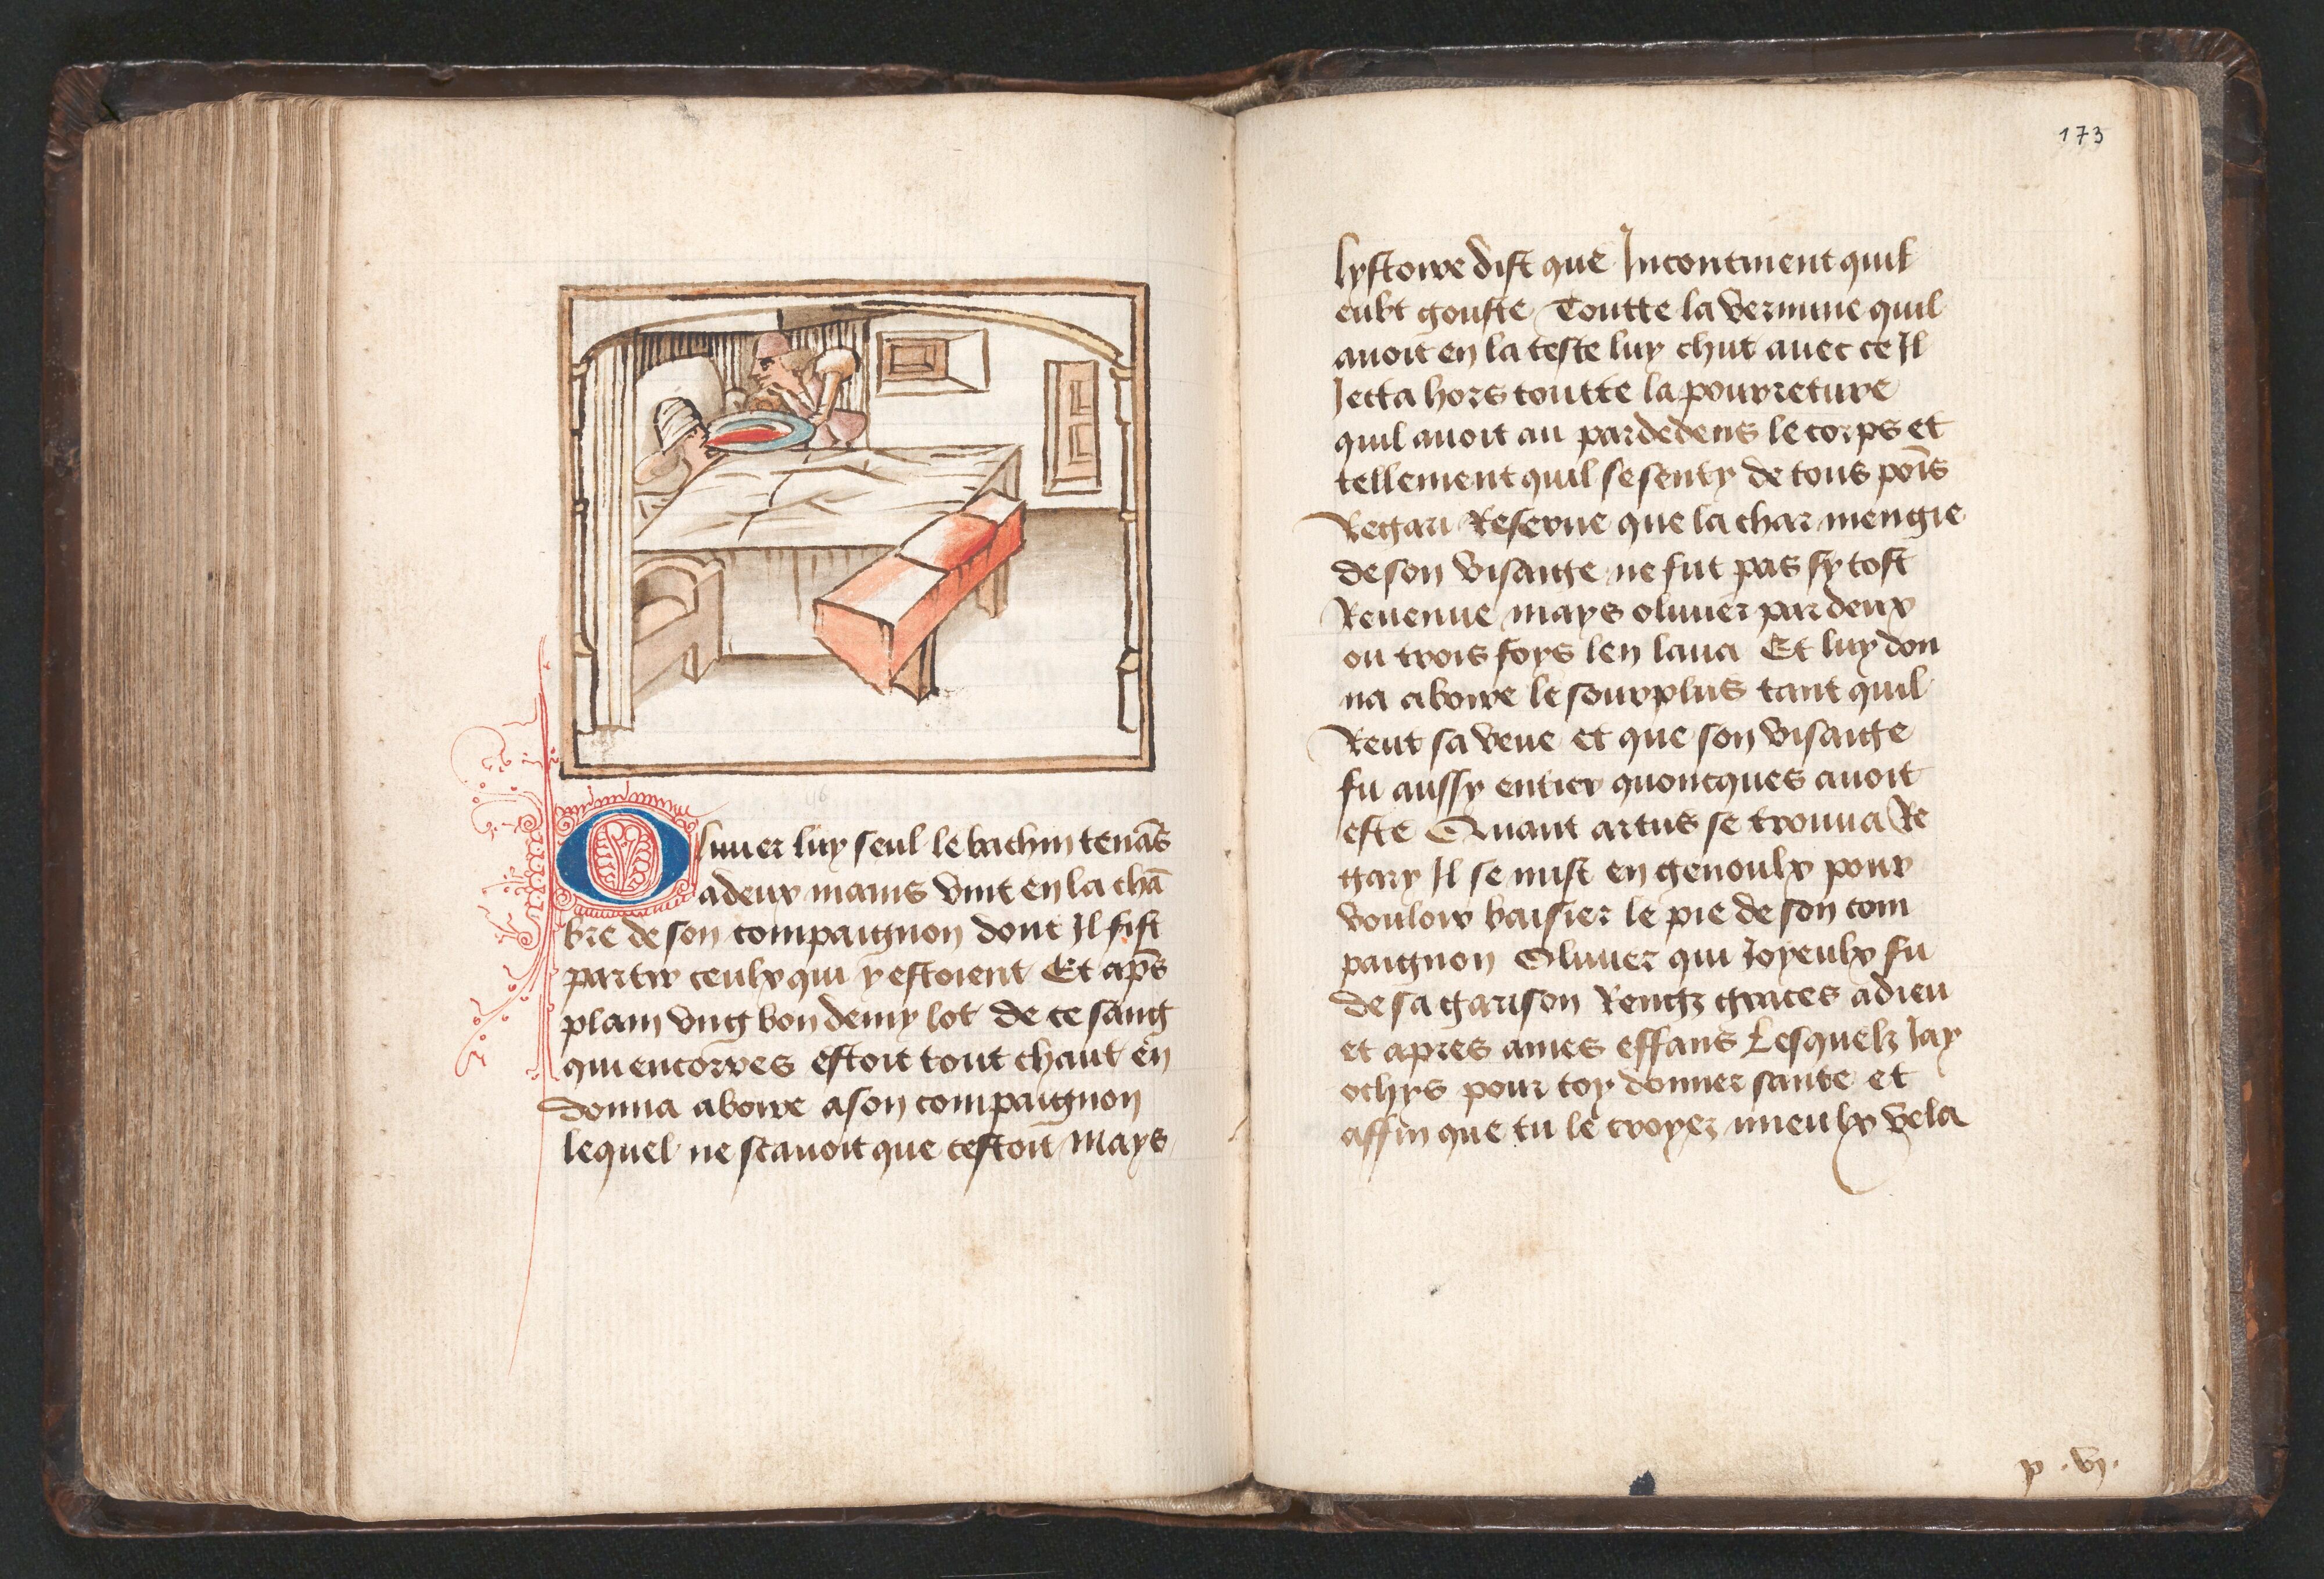 Oliuer luy seul le bachin tenās
a deux mains vint en la chā
bre de son compaignon dont Il fist
partir ceulx qui y estoient Et ap̄s
plain vng bon demy lot de ce sang
qui encorres estoit tout chaut en
donna aboire a son compaignon
lequel ne scauoit que cestoit Mays
173
lystoire dist que Incontinent quil
eubt gouste Toutte la vermine quil
auoit en la teste luy chut auec ce Il
Jecta hors toutte la pourreture
quil auoit au pardedens le corps et
tellement quil se senty de tous poīs
Regari Reserue que la char mengie
de son visaige ne fut pas sy tost
Reuenue mays oliuier par deux
ou trois foys len laua Et luy don
na aboire le sourplus tant quil
Reut sa veue et que son visaige
fu aussy entier quoncques auoit
este Quant artus se trouua Re
gary Il se mist en genoulx pour
vouloir baisier le pie de son com
paignon Oliuier qui Joyeulx fu
de sa garison Rengz graces a dieu
et apres a mes effans Lesquelz Jay
ochys pour toy donner sante et
affin que tu le croyez mieulx vela
p . vj .